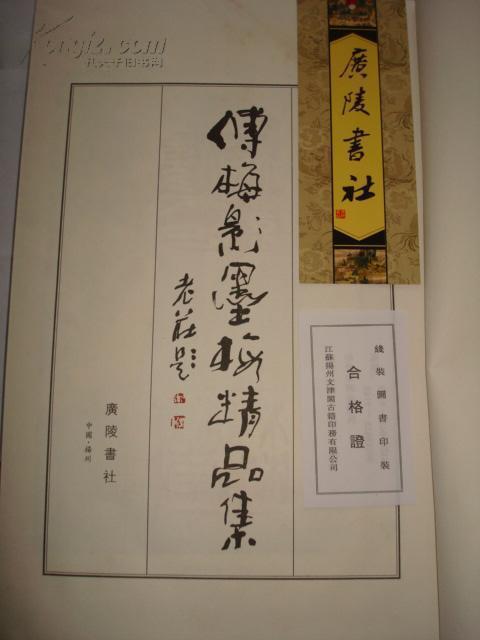 Kongfz.com
孔夫子旧书网
廣陵書社
傅梅影墨梅精品集
老莊題
廣陵書社
中國·揚州
綫裝圖書印裝
合格證
江蘇揚州文津閣古籍印務有限公司